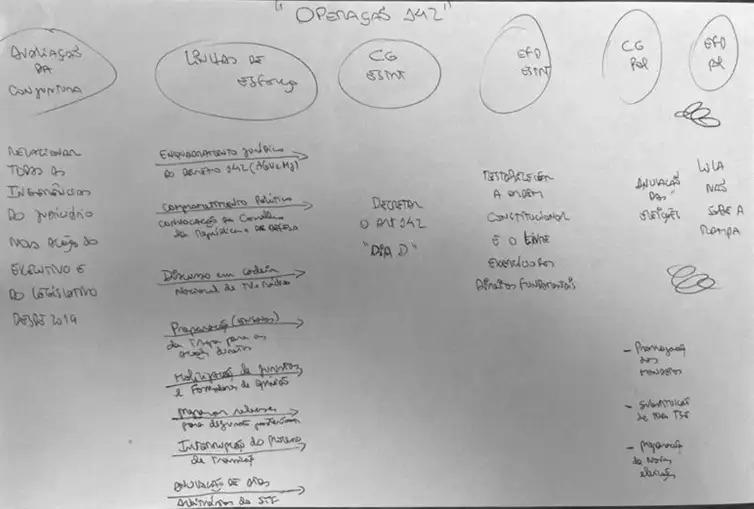 "OPERAÇÃO 142"
AVALIAÇÃO
DA
CONJUNTURA
LINHAS DE
ESFORÇO
CG
ESTNT
EFD
ESTNT
CG
POL
EFD
POL
RELACIONAR
TODAS AS
INGERÊNCIAS
DO JUDICIÁRIO
NAS AÇÃO DO
EXECUTIVO E
DO LEGISLATIVO
DESDE 2019
ENQUADRAMENTO JURÍDICO
DO DECRETO 142 (AGU e MJ)
Comprometimento Político
convocação do Conselho
da República e DE DEFESA
Discurso em cadeia
Nacional de TV e Rádio
Preparação
da Tropa para as
ações diretas
Mobilização de juristas
e Formadores de Opinião
para
Interrupção do Processo
de Transição
ANULAÇÃO DE ATOS
Arbitrários do STF
DECRETAR
O ART 142
"DIA D"
RESTABELECER
A ORDEM
CONSTITUCIONAL
E O LIVRE
EXERCÍCIO DOS
DIREITOS FUNDAMENTAIS
ANULAÇÃO
DAS
ELEIÇÕES
- Prorrogação
dos
MANDATOS
- SUBSTITUIÇÃO
de TSE
- preparação
de Novas
eleições
LULA
NÃO
SOBE A
RAMPA